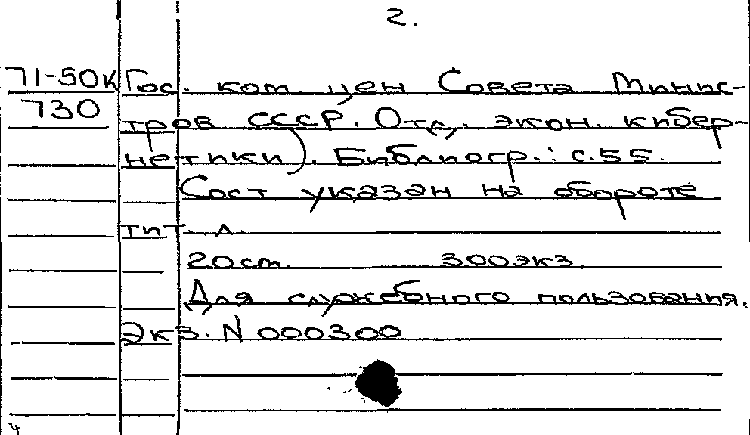 2.
71-50к Гос. ком. цен Совета Минис-
730 тров СССР. Отд. экон. кибер-
нетики). Библиогр.: с.55.
Сост указан на обороте
тит. л.
20см. 300экз.
Для служебного пользования.
Экз. N 000300